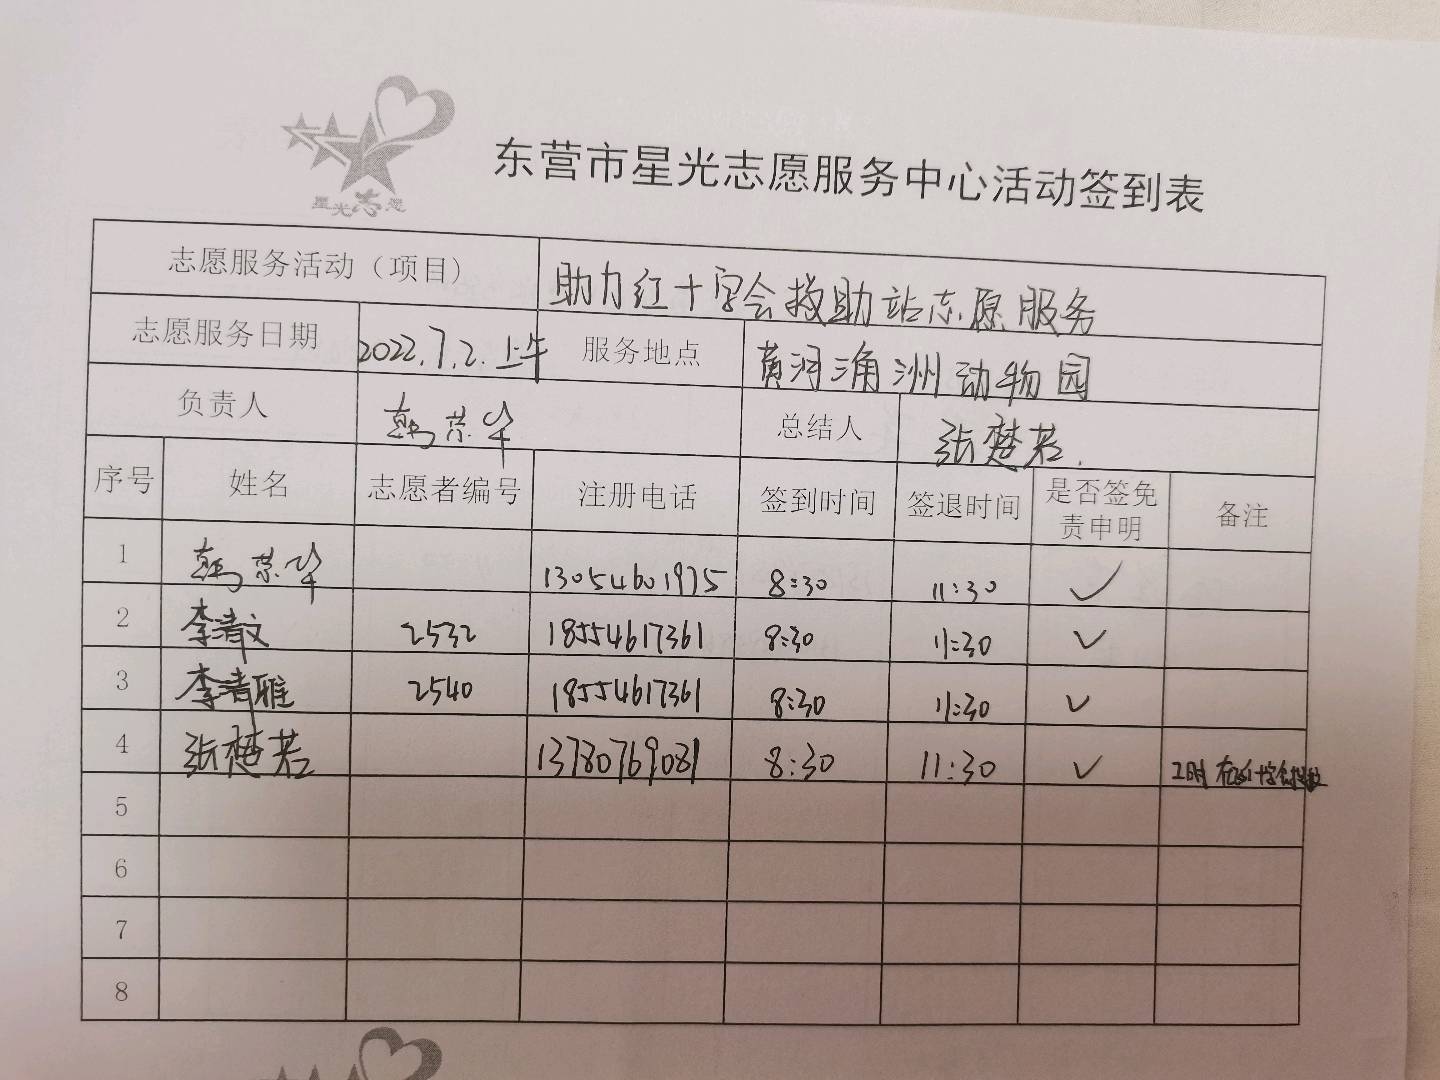 星光志愿
东营市星光志愿服务中心活动签到表
志愿服务活动（项目） 助力红十字会救助站志愿服务
志愿服务日期 2022.7.2.上午 服务地点 黄河三角洲动物园
负责人 韩荣华 总结人 张楚若.
序号 姓名 志愿者编号 注册电话 签到时间 签退时间 是否签免责申明 备注
1 韩荣华 13054601975 8:30 11:30 ✓
2 李清文 2532 18554617361 8:30 11:30 ✓
3 李清雅 2540 18554617361 8:30 11:30 ✓
4 张楚若 13780769081 8:30 11:30 ✓ 工时在红十字会
5
6
7
8